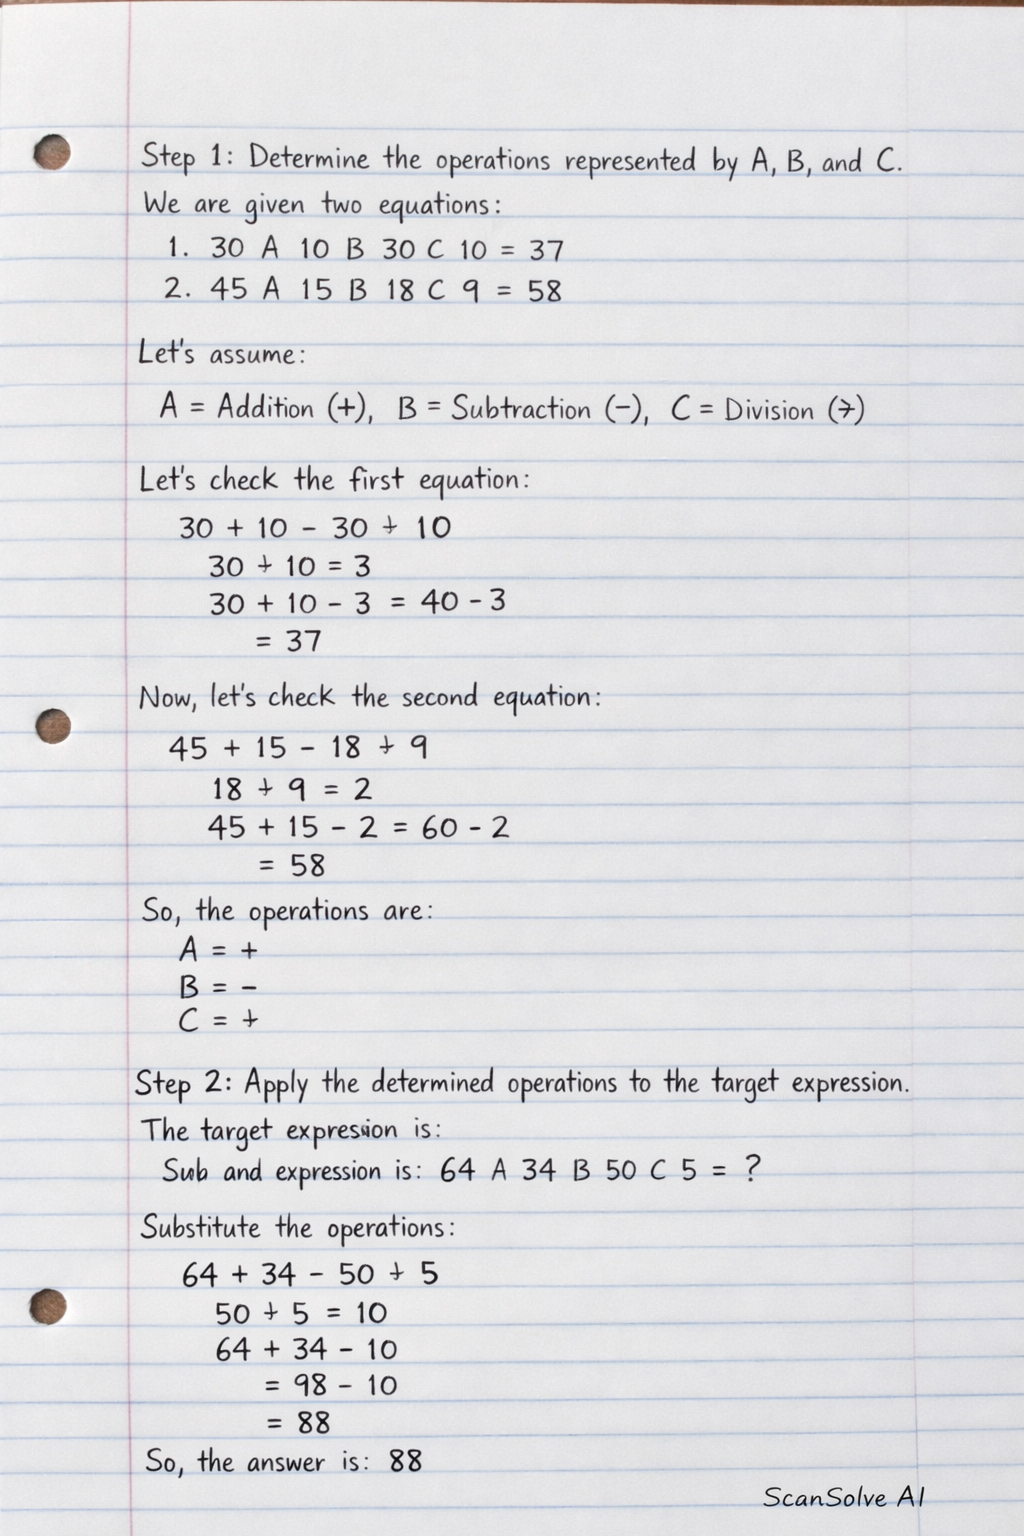 Step 1: Determine the operations represented by A, B, and C.
We are given two equations:
1. 30 A 10 B 30 C 10 = 37
2. 45 A 15 B 18 C 9 = 58
Let's assume:
A = Addition (+), B = Subtraction (-), C = Division (÷)
Let's check the first equation:
30 + 10 - 30 ÷ 10
30 ÷ 10 = 3
30 + 10 - 3 = 40 - 3
= 37
Now, let's check the second equation:
45 + 15 - 18 ÷ 9
18 ÷ 9 = 2
45 + 15 - 2 = 60 - 2
= 58
So, the operations are:
A = +
B = -
C = ÷
Step 2: Apply the determined operations to the target expression.
The target expression is:
Sub and expression is: 64 A 34 B 50 C 5 = ?
Substitute the operations:
64 + 34 - 50 ÷ 5
50 ÷ 5 = 10
64 + 34 - 10
= 98 - 10
= 88
So, the answer is: 88
ScanSolve AI